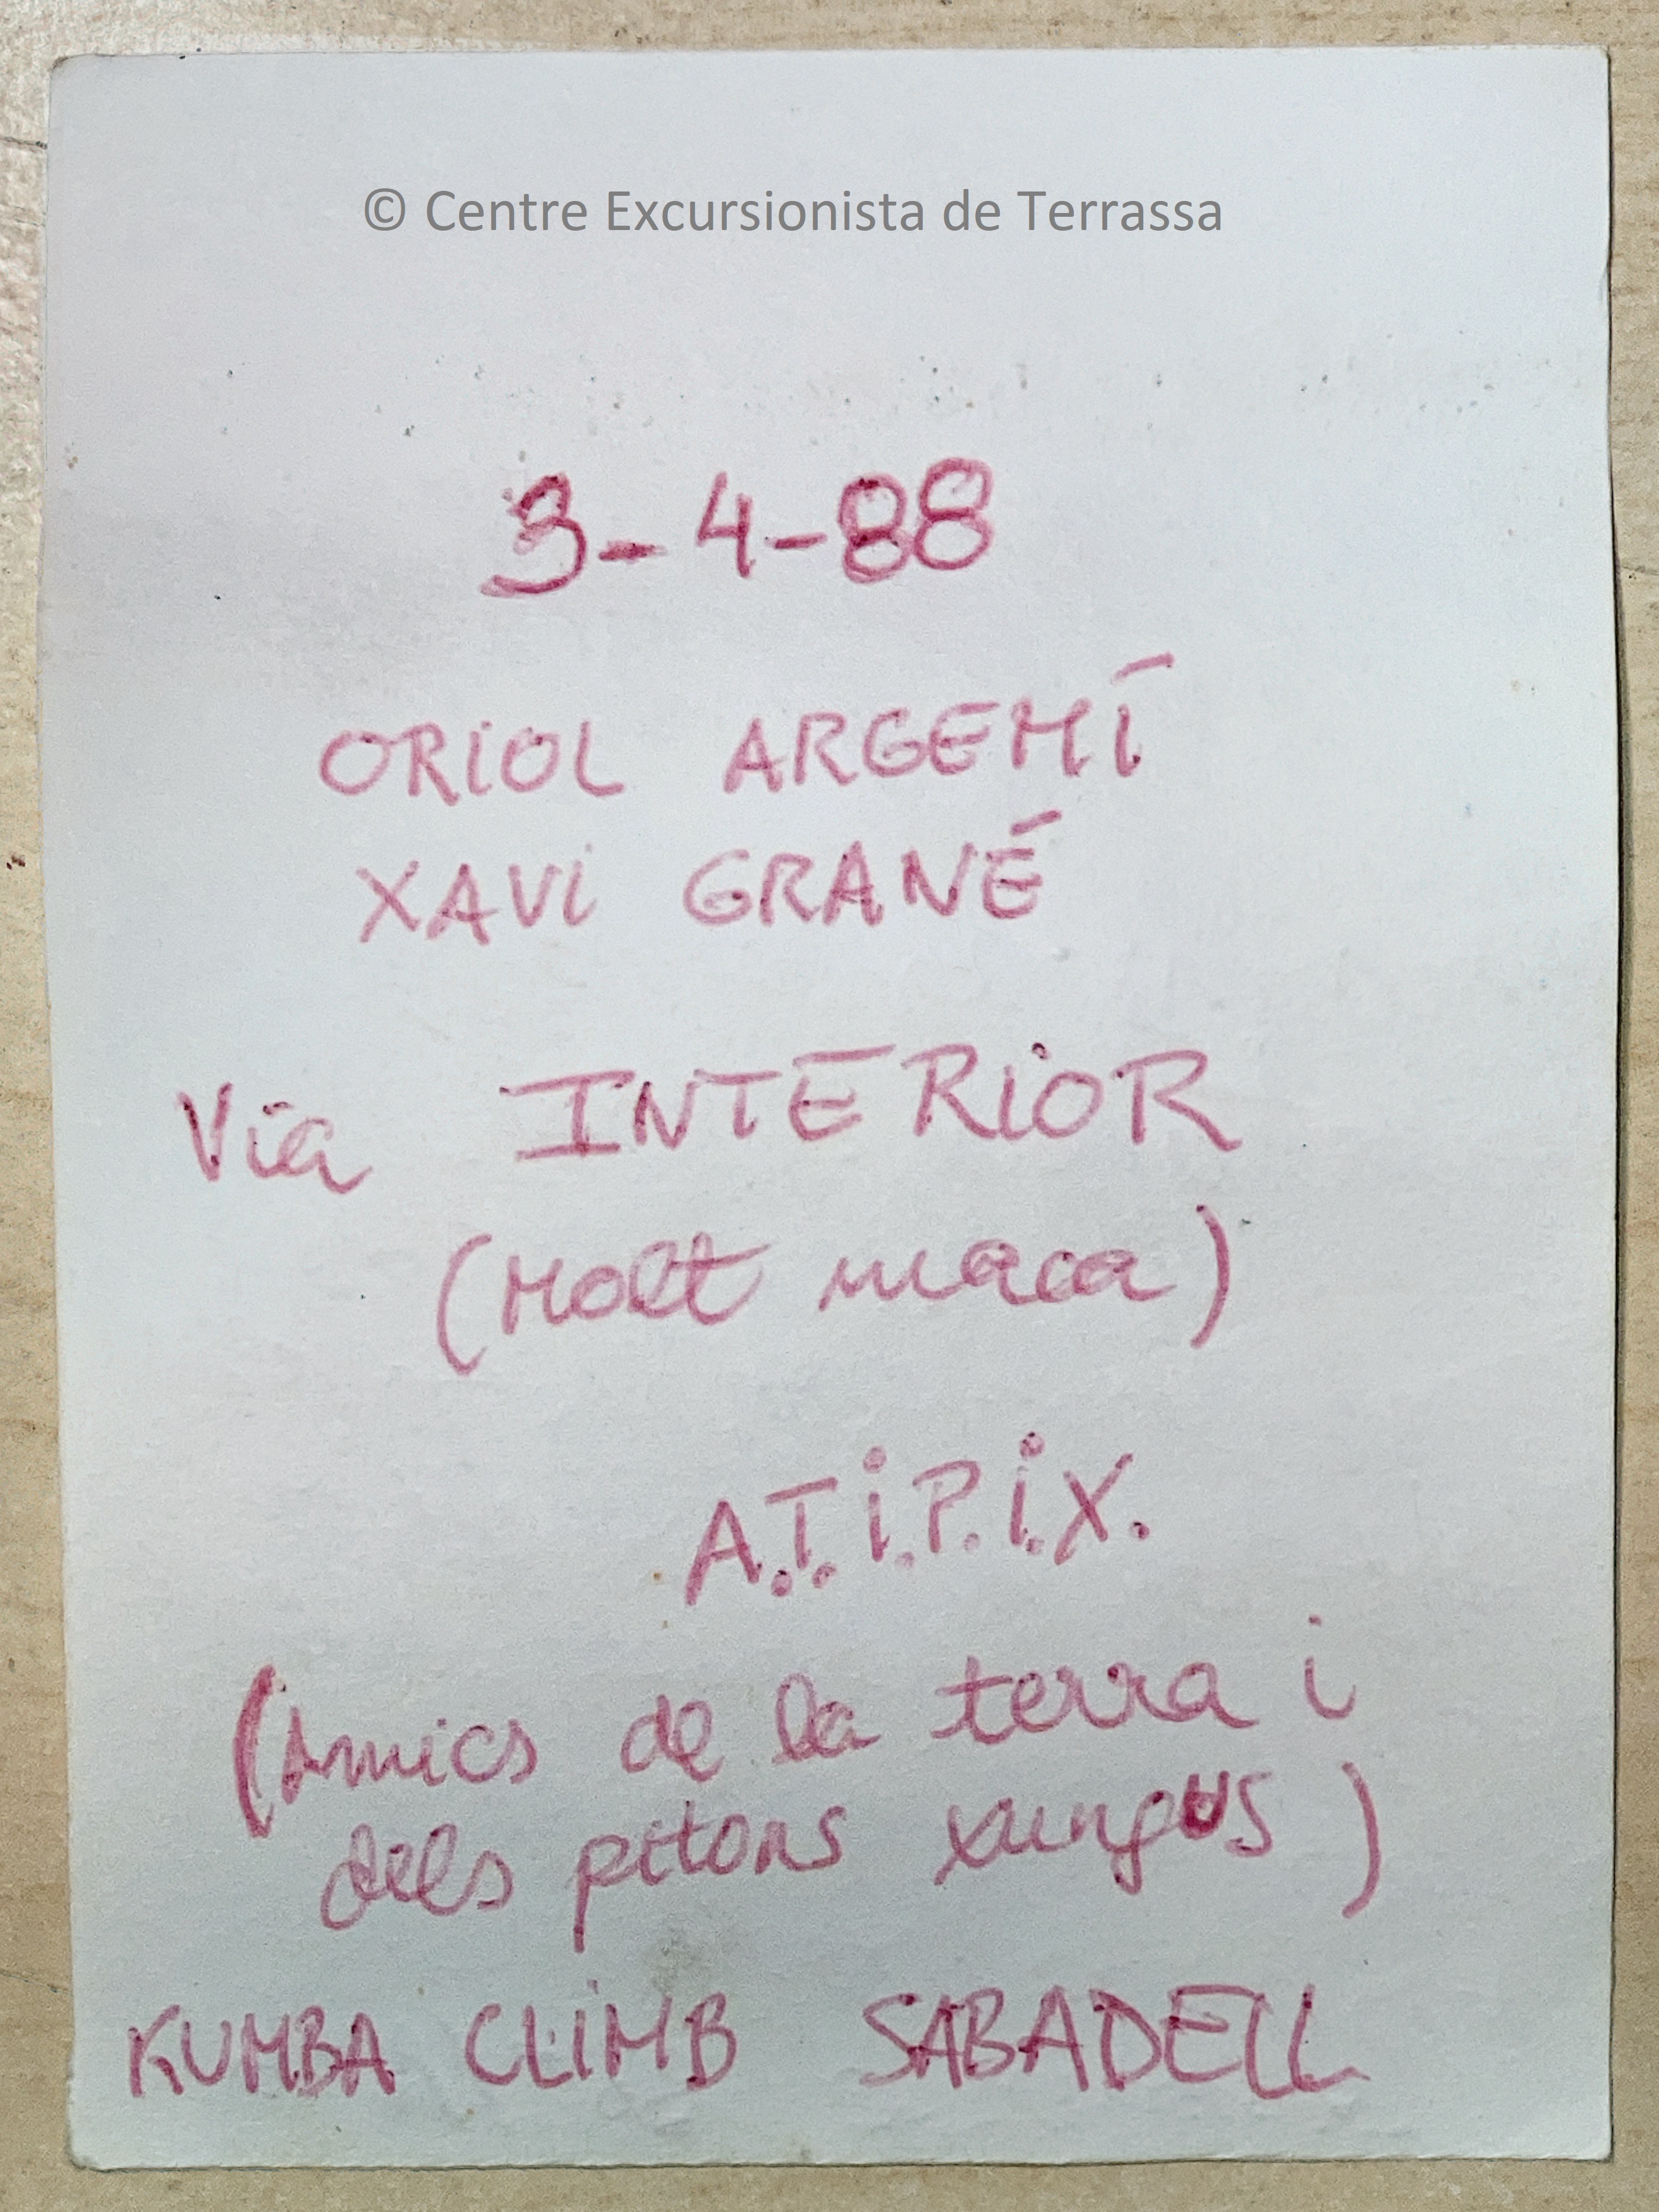 © Centre Excursionista de Terrassa
3-4-88
ORIOL ARGEMÍ
XAVI GRANÉ
Via INTERIOR
(Molt maca)
A.T.I.P.I.X.
(Amics de la terra i
dels pitons xungus)
KUMBA CLIMB SABADELL